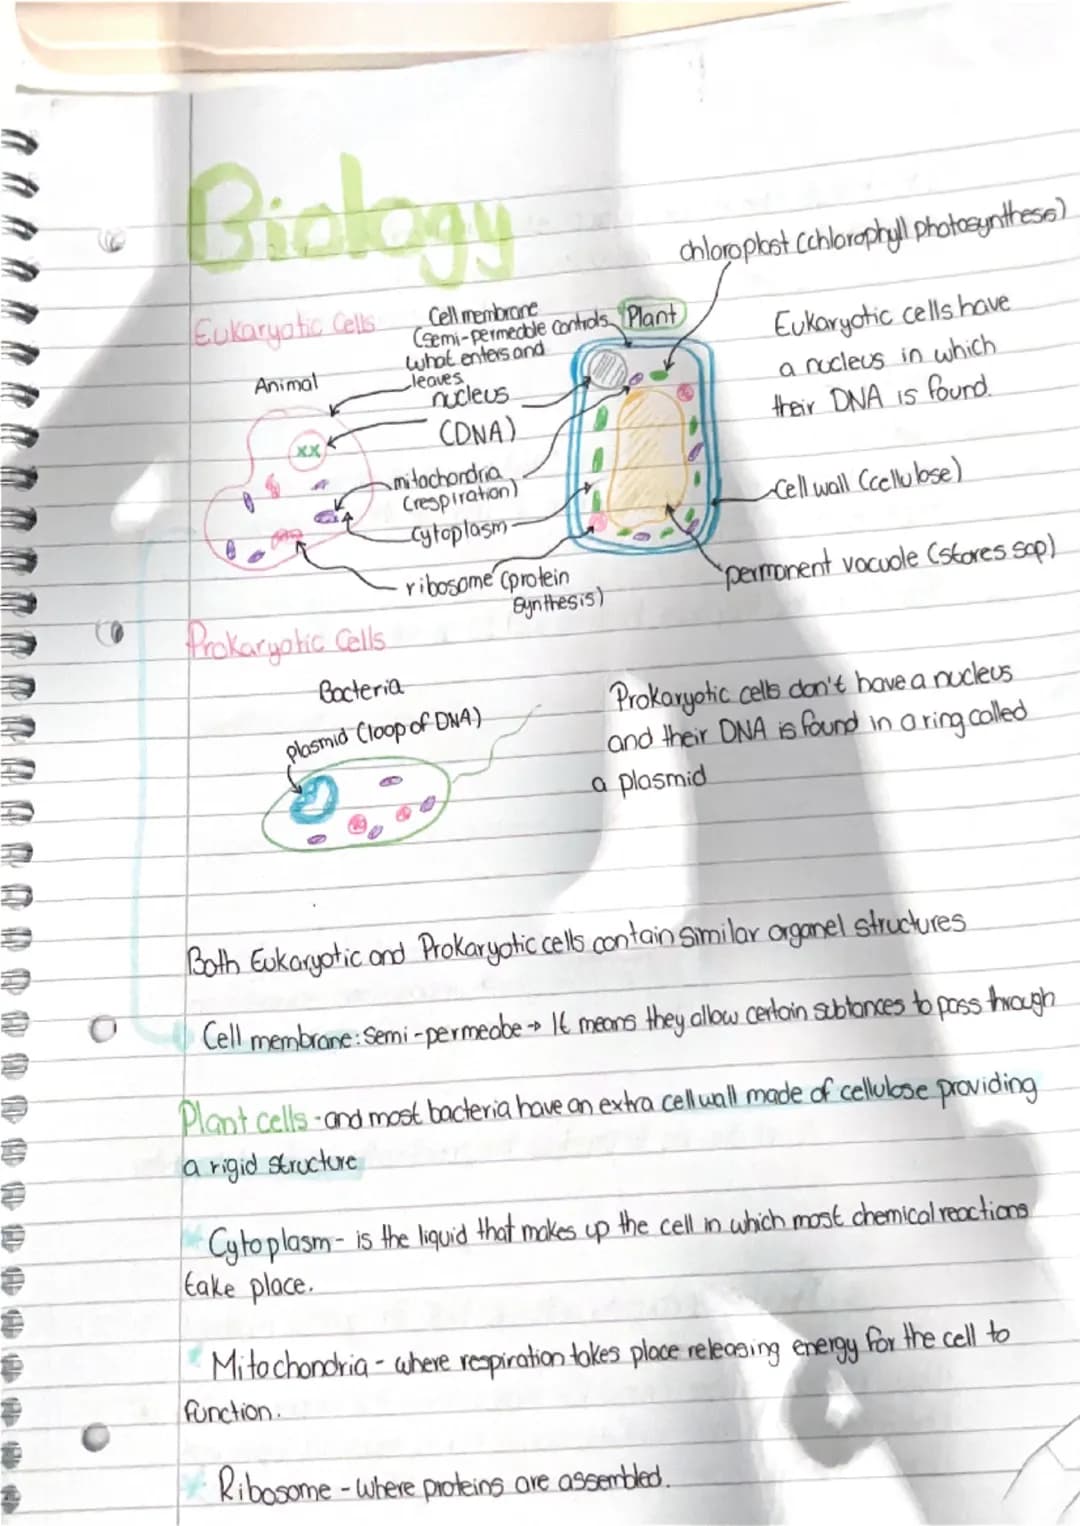 Biology
chloroplast (chlorophyll photosynthesis)
Eukaryotic Cells
Cell membrane
(semi-permeable controls
what enters and
leaves
Plant
Eukaryotic cells have
a nucleus in which
their DNA is found.
Animal
nucleus
(DNA)
xx
mitochondria
(respiration)
Cytoplasm
ribosome (protein
synthesis)
Cell wall (cellulose)
permanent vacuole (stores sap)
Prokaryotic Cells
Bacteria
plasmid (loop of DNA)
Prokaryotic cells don't have a nucleus
and their DNA is found in a ring called
a plasmid
Both Eukaryotic and Prokaryotic cells contain similar organel structures
Cell membrane: Semi-permeabe → It means they allow certain subtances to pass through
Plant cells - and most bacteria have an extra cell wall made of cellulose providing
a rigid structure
Cytoplasm - is the liquid that makes up the cell in which most chemical reactions
take place.
Mitochondria - where respiration takes place releasing energy for the cell to
function.
Ribosome - where proteins are assembled.